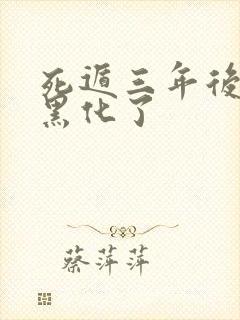 死遁三年後
黑化了
蔡萍萍